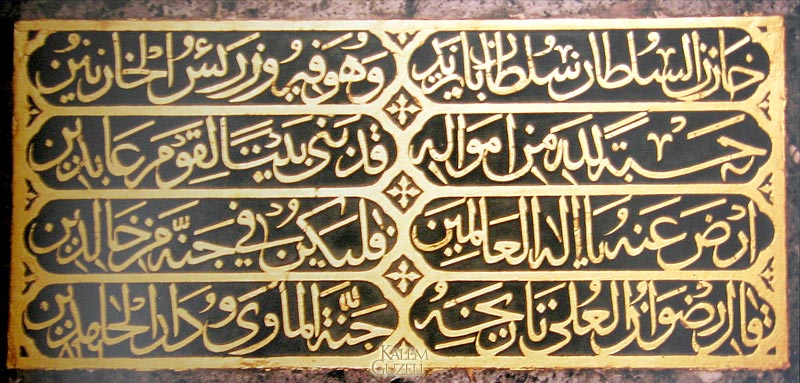 خازن السلطان سلطان بايزيد وهو فيروز رئس الخازنين
حسبة لله من امواله قد بنى بيتا لقوم عابدين
ارض عنه يا اله العالمين فليكن في جنة من خالدين
قال رضوان العلى تاريخه جنة المأوى ودار الحامدين
٨٩٦
KALEM
GUZELI